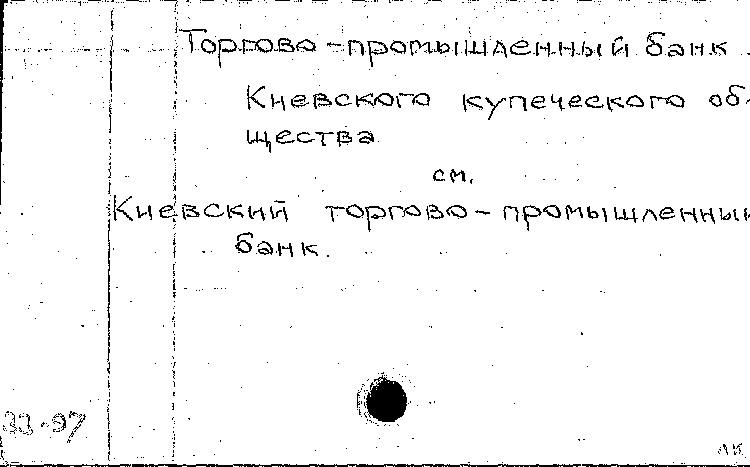 Торгово-промышленный банк
Киевского купеческого об-
щества
см.
Киевский торгово-промышленный
банк.
33-97
лк